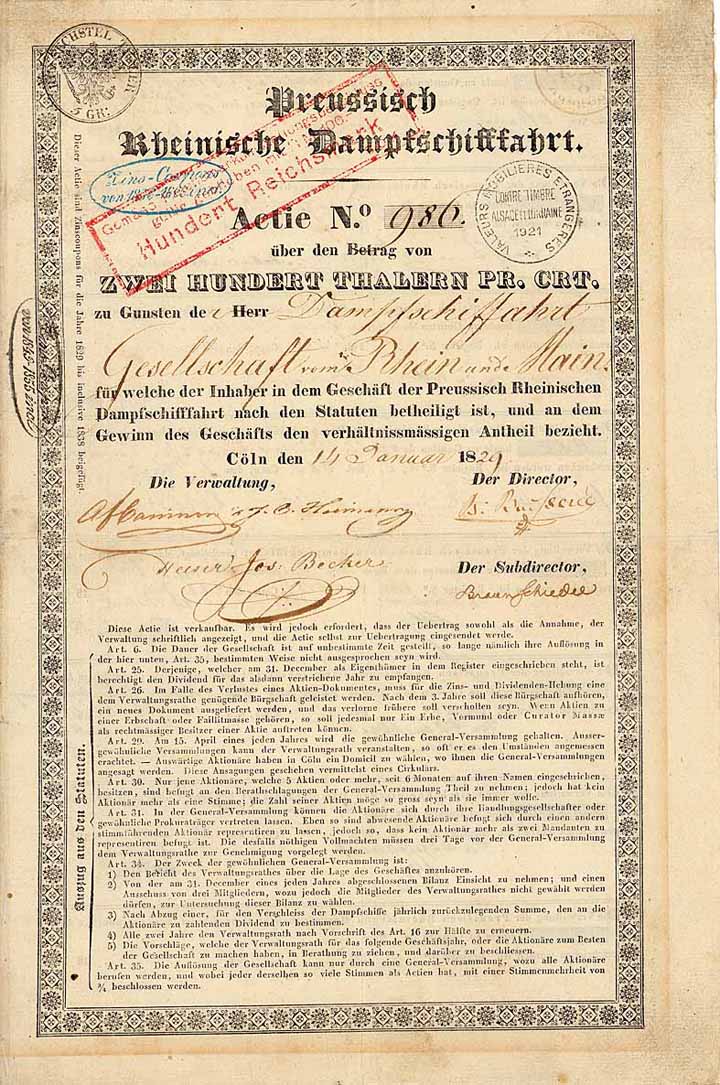 5 GR.
Preussisch
Rheinische Dampfschifffahrt.
Hundert Reichsmark
Zins-Coupons
VALEURS MOBILIERES ETRANGERES
CONTRE TIMBRE
ALSACE ET LORRAINE
1921
Actie N.º 986.
über den Betrag von
ZWEI HUNDERT THALERN PR. CRT.
zu Gunsten der Herr Dampfschiffahrt
Gesellschaft vom Rhein und Main
für welche der Inhaber in dem Geschäft der Preussisch Rheinischen
Dampfschifffahrt nach den Statuten betheiligt ist, und an dem
Gewinn des Geschäfts den verhältnissmässigen Antheil bezieht.
Cöln den 14 Januar 1829
Die Verwaltung, Der Director,
Heinr. Jos. Becker
Der Subdirector,
Dieser Actie sind Zinscoupons für die Jahre 1829 bis inclusive 1838 beigefügt
Diese Actie ist verkaufbar. Es wird jedoch erfordert, dass der Uebertrag sowohl als die Annahme, der
Verwaltung schriftlich angezeigt, und die Actie selbst zur Uebertragung eingesendet werde.
Auszug aus den Statuten.
Art. 6. Die Dauer der Gesellschaft ist auf unbestimmte Zeit gestellt, so lange nämlich ihre Auflösung in
der hier unten, Art. 35, bestimmten Weise nicht ausgesprochen seyn wird.
Art. 25. Derjenige, welcher am 31. December als Eigenthümer in dem Register eingeschrieben steht, ist
berechtigt den Dividend für das alsdann verstrichene Jahr zu empfangen.
Art. 26. Im Falle des Verlustes eines Aktien-Dokumentes, muss für die Zins- und Dividenden-Hebung eine
dem Verwaltungsrathe genügende Bürgschaft geleistet werden. Nach dem 3. Jahre soll diese Bürgschaft aufhören,
ein neues Dokument ausgeliefert werden, und das verlorne frühere soll verschollen seyn. Wenn Aktien zu
einer Erbschaft oder Faillitmasse gehören, so soll jedesmal nur Ein Erbe, Vormund oder Curator Massæ
als rechtmässiger Besitzer einer Aktie auftreten können.
Art. 29. Am 15. April eines jeden Jahres wird die gewöhnliche General-Versammlung gehalten. Ausser-
gewöhnliche Versammlungen kann der Verwaltungsrath veranstalten, so oft er es den Umständen angemessen
erachtet. — Auswärtige Aktionäre haben in Cöln ein Domicil zu wählen, wo ihnen die General-Versammlungen
angesagt werden. Diese Ansagungen geschehen vermittelst eines Cirkulars.
Art. 30. Nur jene Aktionäre, welche 5 Aktien oder mehr, seit 6 Monaten auf ihren Namen eingeschrieben,
besitzen, sind befugt an den Berathschlagungen der General-Versammlung Theil zu nehmen; jedoch hat kein
Aktionär mehr als eine Stimme; die Zahl seiner Aktien möge so gross seyn als sie immer wolle.
Art. 31. In der General-Versammlung können die Aktionäre sich durch ihre Handlungsgesellschafter oder
gewöhnliche Prokuraträger vertreten lassen. Eben so sind abwesende Aktionäre befugt sich durch einen andern
stimmführenden Aktionär representiren zu lassen, jedoch so, dass kein Aktionär mehr als zwei Mandanten zu
representiren befugt ist. Die desfalls nöthigen Vollmachten müssen drei Tage vor der General-Versammlung
dem Verwaltungsrathe zur Genehmigung vorgelegt werden.
Art. 34. Der Zweck der gewöhnlichen General-Versammlung ist:
1) Den Bericht des Verwaltungsrathes über die Lage des Geschäftes anzuhören.
2) Von der am 31. December eines jeden Jahres abgeschlossenen Bilanz Einsicht zu nehmen; und einen
Ausschuss von drei Mitgliedern, wozu jedoch die Mitglieder des Verwaltungsrathes nicht gewählt werden
dürfen, zur Untersuchung dieser Bilanz zu wählen.
3) Nach Abzug einer, für den Verschleiss der Dampfschiffe jährlich zurückzulegenden Summe, den an die
Aktionäre zu zahlenden Dividend zu bestimmen.
4) Alle zwei Jahre den Verwaltungsrath nach Vorschrift des Art. 16 zur Hälfte zu erneuern.
5) Die Vorschläge, welche der Verwaltungsrath für das folgende Geschäftsjahr, oder die Aktionäre zum Besten
der Gesellschaft zu machen haben, in Berathung zu ziehen, und darüber zu beschliessen.
Art. 35. Die Auflösung der Gesellschaft kann nur durch eine General-Versammlung, wozu alle Aktionäre
berufen werden, und wobei jeder derselben so viele Stimmen als Actien hat, mit einer Stimmenmehrheit von
¾ beschlossen werden.